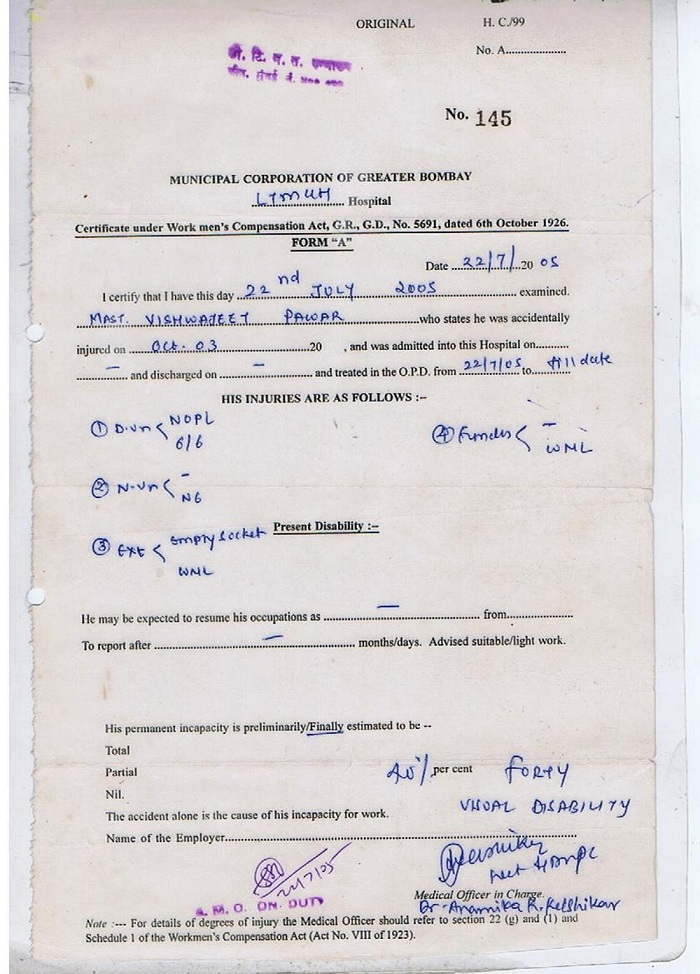 ORIGINAL H. C./99
No. A....................
No. 145
MUNICIPAL CORPORATION OF GREATER BOMBAY
LTMGH Hospital
Certificate under Work men's Compensation Act, G.R., G.D., No. 5691, dated 6th October 1926.
FORM "A"
Date 22/7/2005
I certify that I have this day 22nd JULY 2005 examined.
MAST. VISHWAJEET PAWAR who states he was accidentally
injured on Oct. 03 20 , and was admitted into this Hospital on..........
— and discharged on — and treated in the O.P.D. from 22/7/05 to till date
HIS INJURIES ARE AS FOLLOWS :–
① D.Vn < NOPL
6/6
④ Fundus < –
WNL
② N.Vn < –
N6
Present Disability :–
③ EXE < Empty socket
WNL
He may be expected to resume his occupations as — from................
To report after — months/days. Advised suitable/light work.
His permanent incapacity is preliminarily/Finally estimated to be --
Total
Partial 40% per cent FORTY
Nil. VISUAL DISABILITY
The accident alone is the cause of his incapacity for work.
Name of the Employer....................
22/7/05
A. M. O. ON DUTY
Medical Officer in Charge.
Dr. Anamika R. Kelshikar
Note :--- For details of degrees of injury the Medical Officer should refer to section 22 (g) and (1) and
Schedule 1 of the Workmen's Compensation Act (Act No. VIII of 1923).